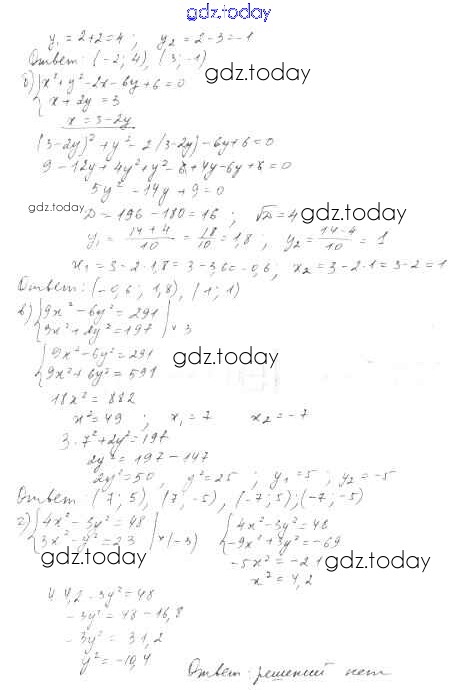 gdz.today
y₁ = 2+2=4 ; y₂ = 2-3=-1
Ответ: (-2; 4), (3; -1)
gdz.today
б) { x² + y² - 2x - 6y + 6 = 0
x + 2y = 3
x = 3-2y
(3-2y)² + y² - 2(3-2y) - 6y + 6 = 0
9 - 12y + 4y² + y² - 6 + 4y - 6y + 6 = 0
5y² - 14y + 9 = 0
gdz.today
D = 196 - 180 = 16 ; √D = 4 gdz.today
y₁ = (14+4)/10 = 18/10 = 1,8 ; y₂ = (14-4)/10 = 1
x₁ = 3 - 2·1,8 = 3 - 3,6 = -0,6 ; x₂ = 3 - 2·1 = 3-2 = 1
Ответ: (-0,6; 1,8), (1; 1)
в) { 9x² - 6y² = 291
3x² + 2y² = 197 | × 3
gdz.today
{ 9x² - 6y² = 291
9x² + 6y² = 591
18x² = 882
x² = 49 ; x₁ = 7 x₂ = -7
3·7² + 2y² = 197
gdz.today
2y² = 197 - 147
2y² = 50, y² = 25 ; y₁ = 5 ; y₂ = -5
Ответ: (7; 5), (7; -5), (-7; 5); (-7; -5)
г) { 4x² - 3y² = 48 { 4x² - 3y² = 48
3x² - y² = 23 | × (-3) -9x² + 3y² = -69
gdz.today -5x² = -21 gdz.today
x² = 4,2
4·4,2 - 3y² = 48
-3y² = 48 - 16,8
-3y² = 31,2
y² = -10,4
Ответ: решений нет
gdz.today